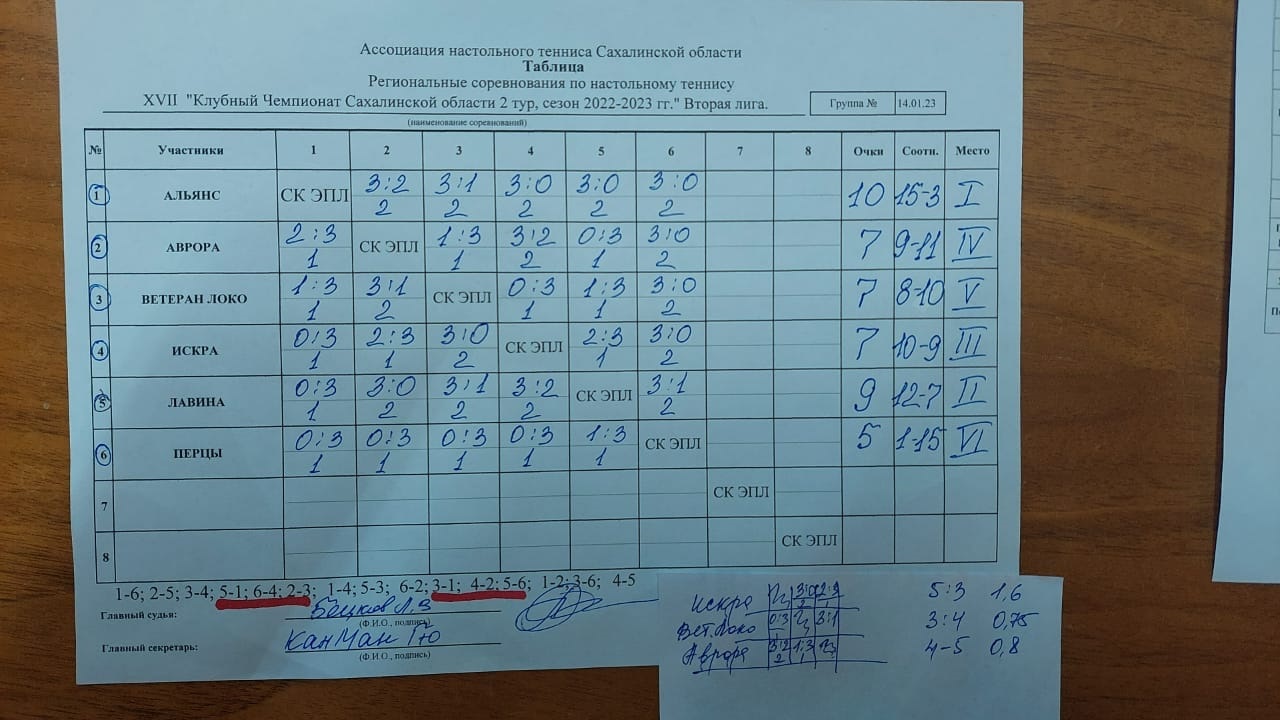 Ассоциация настольного тенниса Сахалинской области
Таблица
Региональные соревнования по настольному теннису
XVII "Клубный Чемпионат Сахалинской области 2 тур, сезон 2022-2023 гг." Вторая лига. Группа № 14.01.23
(наименование соревнований)
№ Участники 1 2 3 4 5 6 7 8 Очки Соотн. Место
1 АЛЬЯНС СК ЭПЛ 3:2 3:1 3:0 3:0 3:0 10 15-3 I
2 2 2 2 2
2 АВРОРА 2:3 СК ЭПЛ 1:3 3:2 0:3 3:0 7 9-11 IV
1 1 2 1 2
3 ВЕТЕРАН ЛОКО 1:3 3:1 СК ЭПЛ 0:3 1:3 3:0 7 8-10 V
1 2 1 1 2
4 ИСКРА 0:3 2:3 3:0 СК ЭПЛ 2:3 3:0 7 10-9 III
1 1 2 1 2
5 ЛАВИНА 0:3 3:0 3:1 3:2 СК ЭПЛ 3:1 9 12-7 II
1 2 2 2 2
6 ПЕРЦЫ 0:3 0:3 0:3 0:3 1:3 СК ЭПЛ 5 1-15 VI
1 1 1 1 1
7 СК ЭПЛ
8 СК ЭПЛ
1-6; 2-5; 3-4; 5-1; 6-4; 2-3; 1-4; 5-3; 6-2; 3-1; 4-2; 5-6; 1-2; 3-6; 4-5
Главный судья:
(Ф.И.О., подпись)
Главный секретарь: Кан Ман Гю
(Ф.И.О., подпись)
Искра 3:0 2:3 5:3 1,6
2 1
Вет.Локо 0:3 3:1 3:4 0,75
Аврора 3:2 1:3 4-5 0,8
2 1